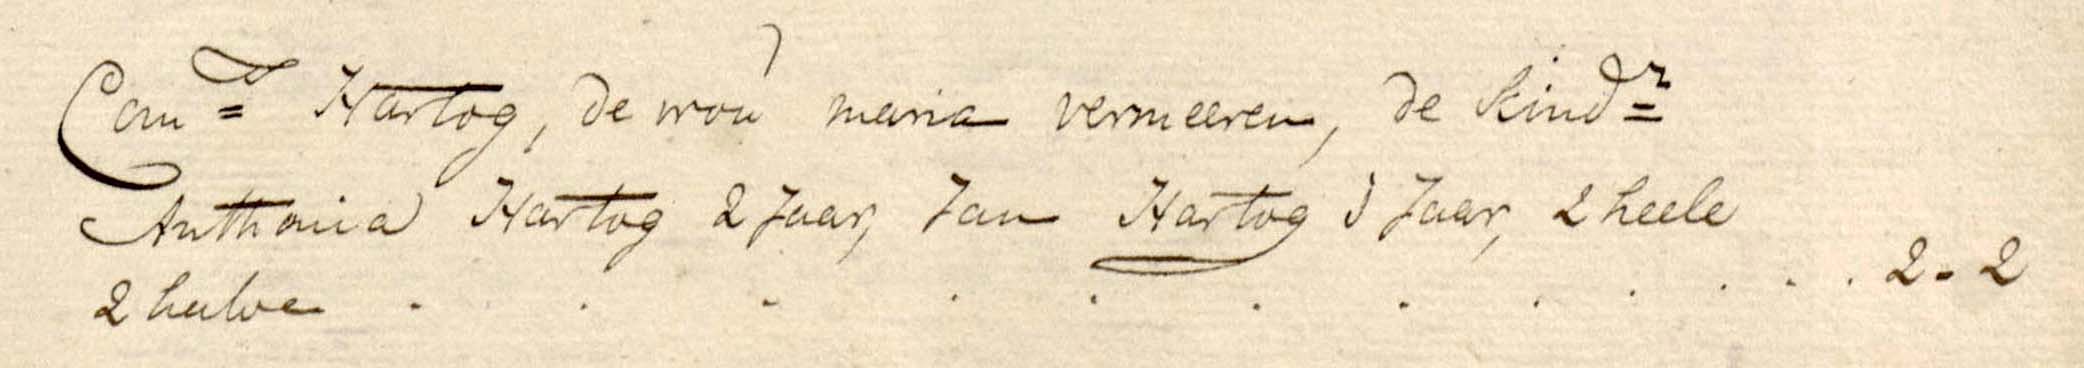 Corn=s Hartog, de vrou maria vermeeren, de kindr=
Anthonia Hartog 2 Jaar, Jan Hartog 1 Jaar, 2 heele
2 halve . . . . . . . . . . . . 2 - 2